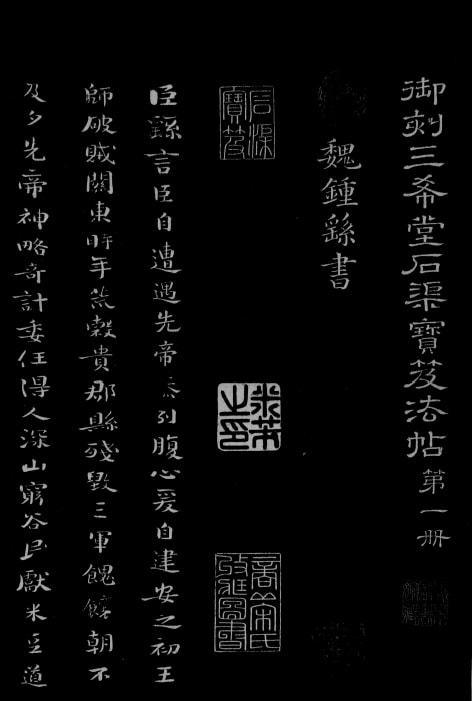 御刻三希堂石渠寶笈法帖第一冊
魏鍾繇書
石渠寶笈
米芾之印
臣繇言臣自遭遇先帝忝列腹心爰自建安之初王
師破賊關東時年荒穀貴郡縣殘毀三軍餽饟朝不
及夕先帝神略奇計委任得人深山窮谷民獻米豆道